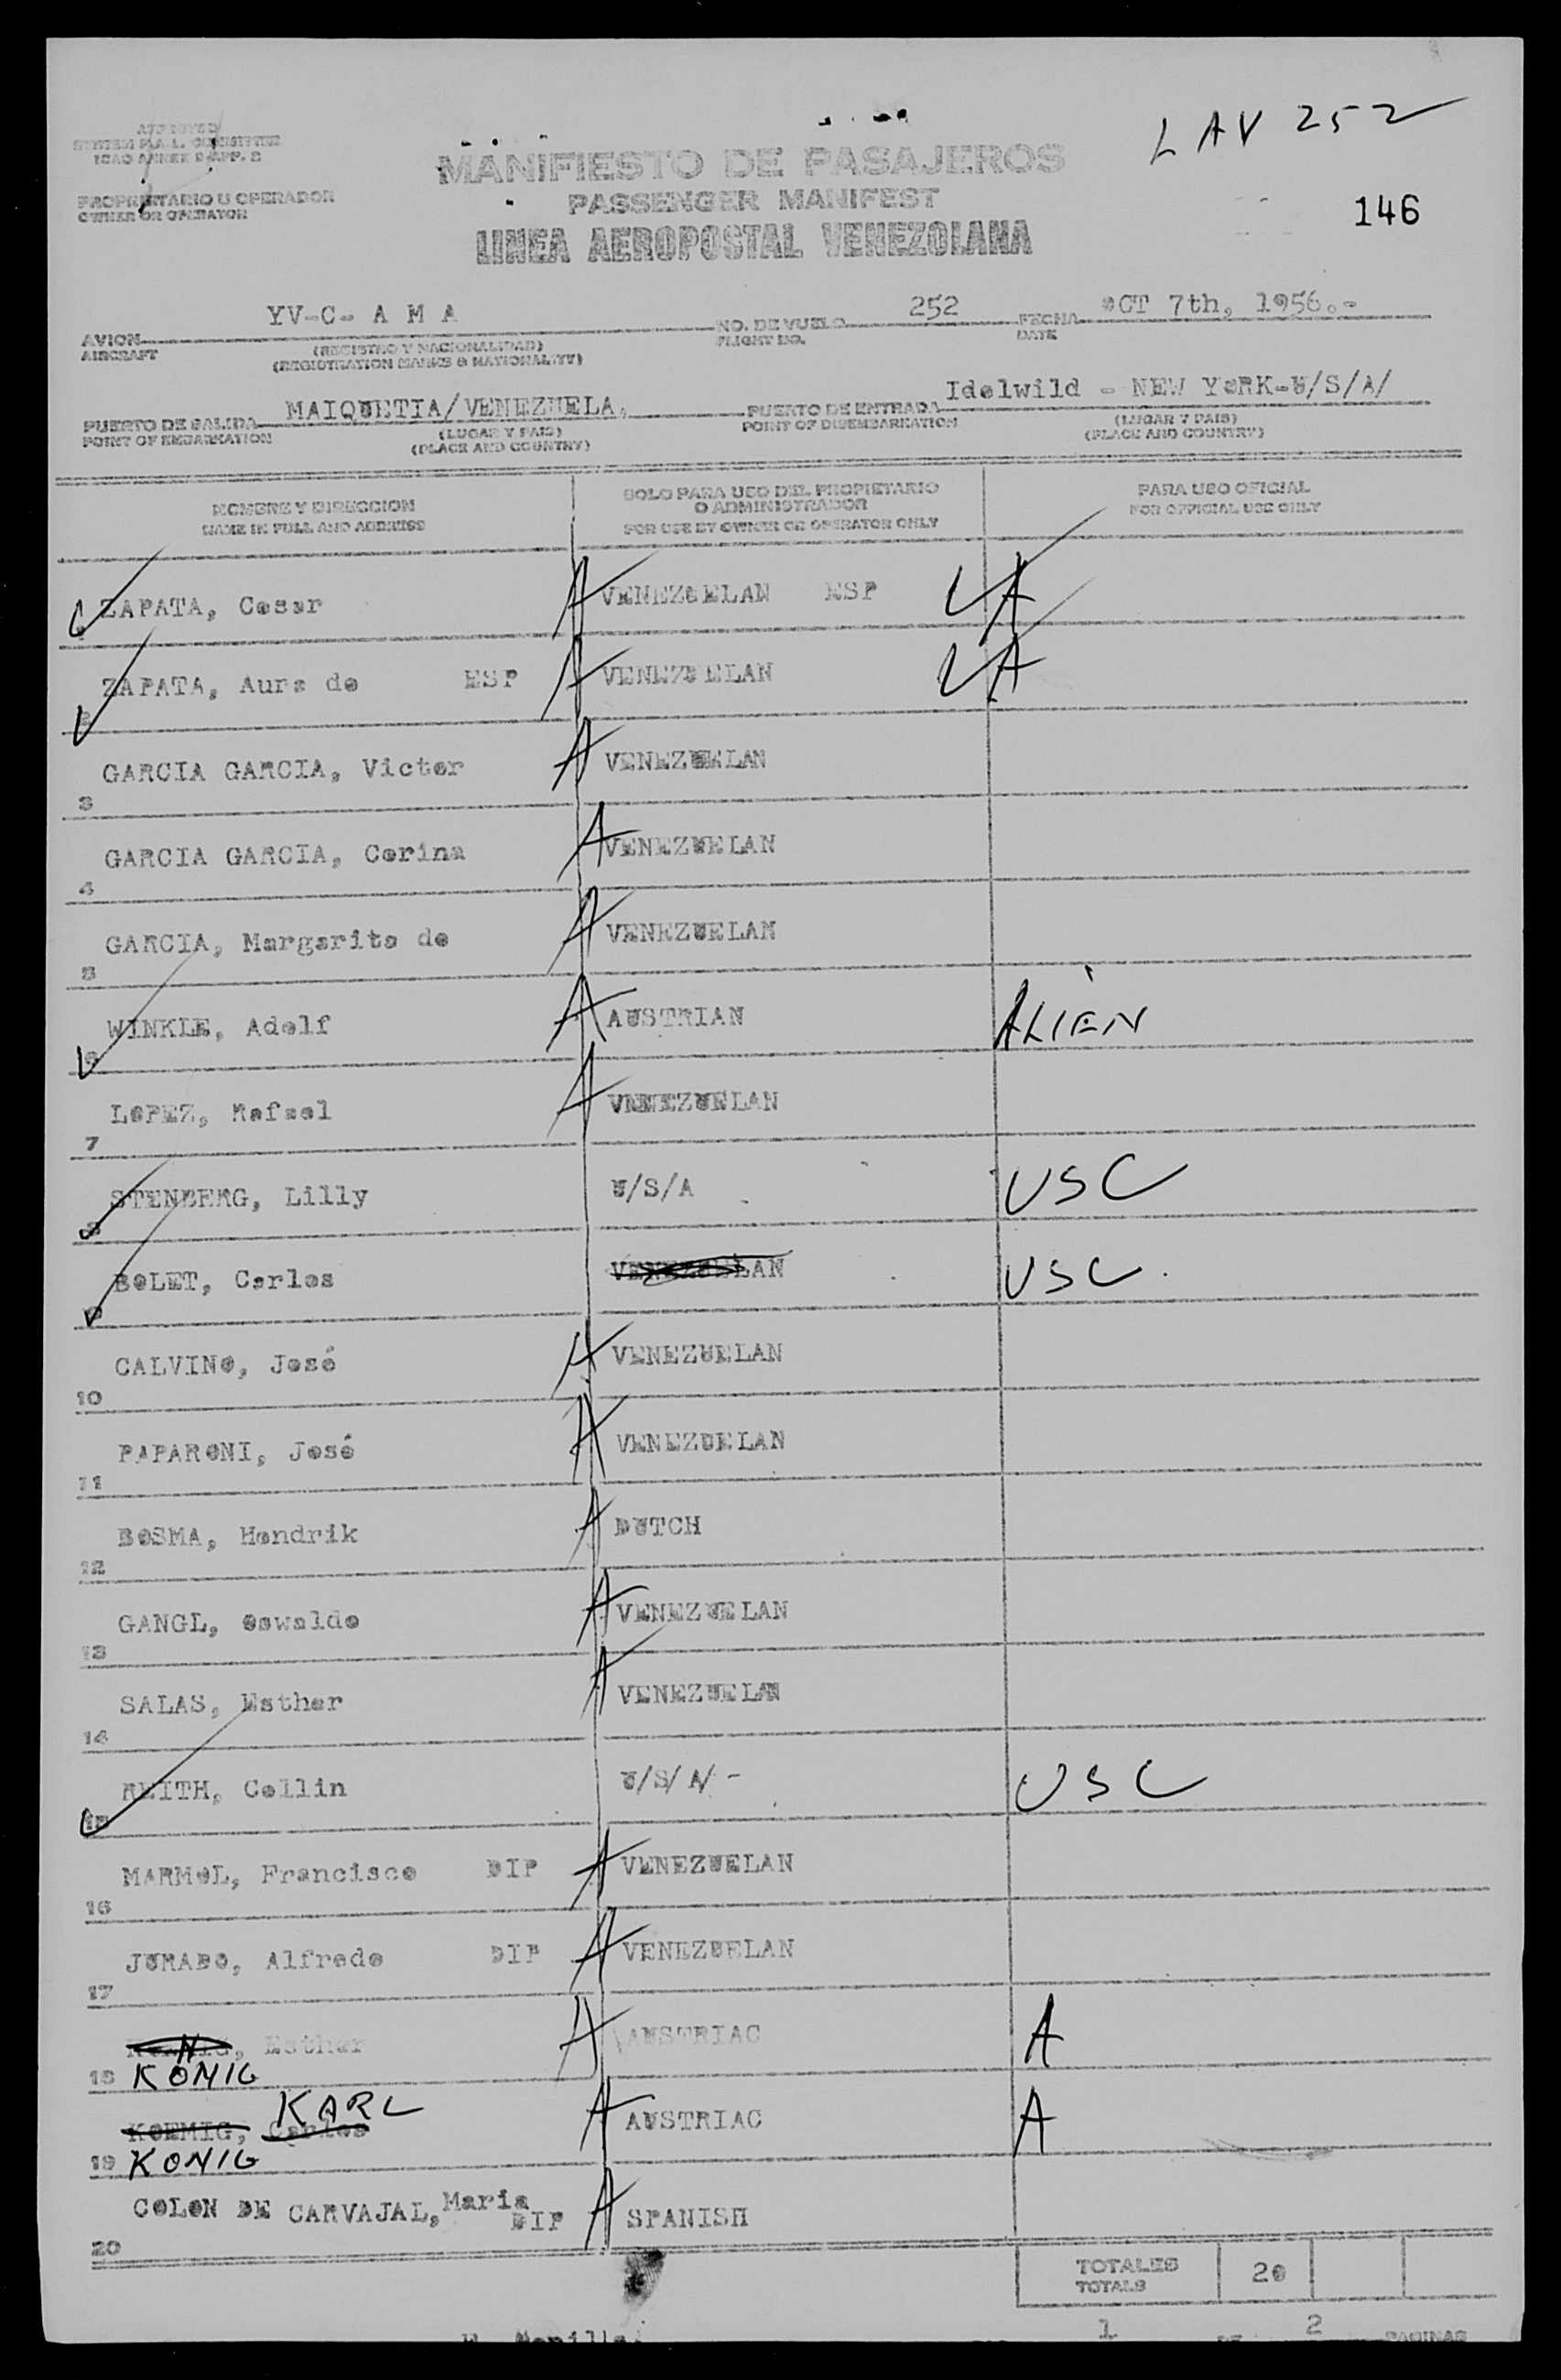 APPROVED
LAV 252
ICAO ANNEX 9 APP. 2
MANIFIESTO DE PASAJEROS
PROPRIETARIO U OPERADOR
OWNER OR OPERATOR
PASSENGER MANIFEST
146
LINEA AEROPOSTAL VENEZOLANA
AVION YV-C- A M A NO. DE VUELO 252 FECHA OCT 7th, 1956.-
AIRCRAFT (REGISTRO Y NACIONALIDAD) FLIGHT NO. DATE
(REGISTRATION MARKS & NATIONALITY)
PUERTO DE SALIDA MAIQUETIA/VENEZUELA. PUERTO DE ENTRADA Idelwild - NEW YORK-U/S/A/
POINT OF EMBARKATION (LUGAR Y PAIS) POINT OF DISEMBARKATION (LUGAR Y PAIS)
(PLACE AND COUNTRY) (PLACE AND COUNTRY)
NOMBRE Y DIRECCION SOLO PARA USO DEL PROPIETARIO PARA USO OFICIAL
O ADMINISTRADOR
NAME IN FULL AND ADDRESS FOR USE BY OWNER OR OPERATOR ONLY FOR OFFICIAL USE ONLY
ZAPATA, Cesar A VENEZUELAN ESP A
ZAPATA, Aura de ESP A VENEZUELAN A
3 GARCIA GARCIA, Victor A VENEZUELAN
4 GARCIA GARCIA, Corina A VENEZUELAN
5 GARCIA, Margarita de A VENEZUELAN
6 WINKLE, Adolf A AUSTRIAN ALIEN
7 LOPEZ, Rafael A VENEZUELAN
8 STENBERG, Lilly U/S/A USC
9 BOLET, Carlos VENEZUELAN USC.
10 CALVINO, José A VENEZUELAN
11 PAPARONI, José A VENEZUELAN
12 BOSMA, Hendrik A DUTCH
13 GANGL, Oswaldo A VENEZUELAN
14 SALAS, Esther A VENEZUELAN
15 REITH, Collin U/S/A/- USC
16 MARMOL, Francisco DIP A VENEZUELAN
17 JURADO, Alfredo DIP A VENEZUELAN
Esther A AUSTRIAC A
18 KONIG
KARL
KOEMIG, Carlos A AUSTRIAC A
19 KONIG
20 COLON DE CARVAJAL, Maria DIP A SPANISH
TOTALES 20
TOTALS
1 DE 2 PAGINAS